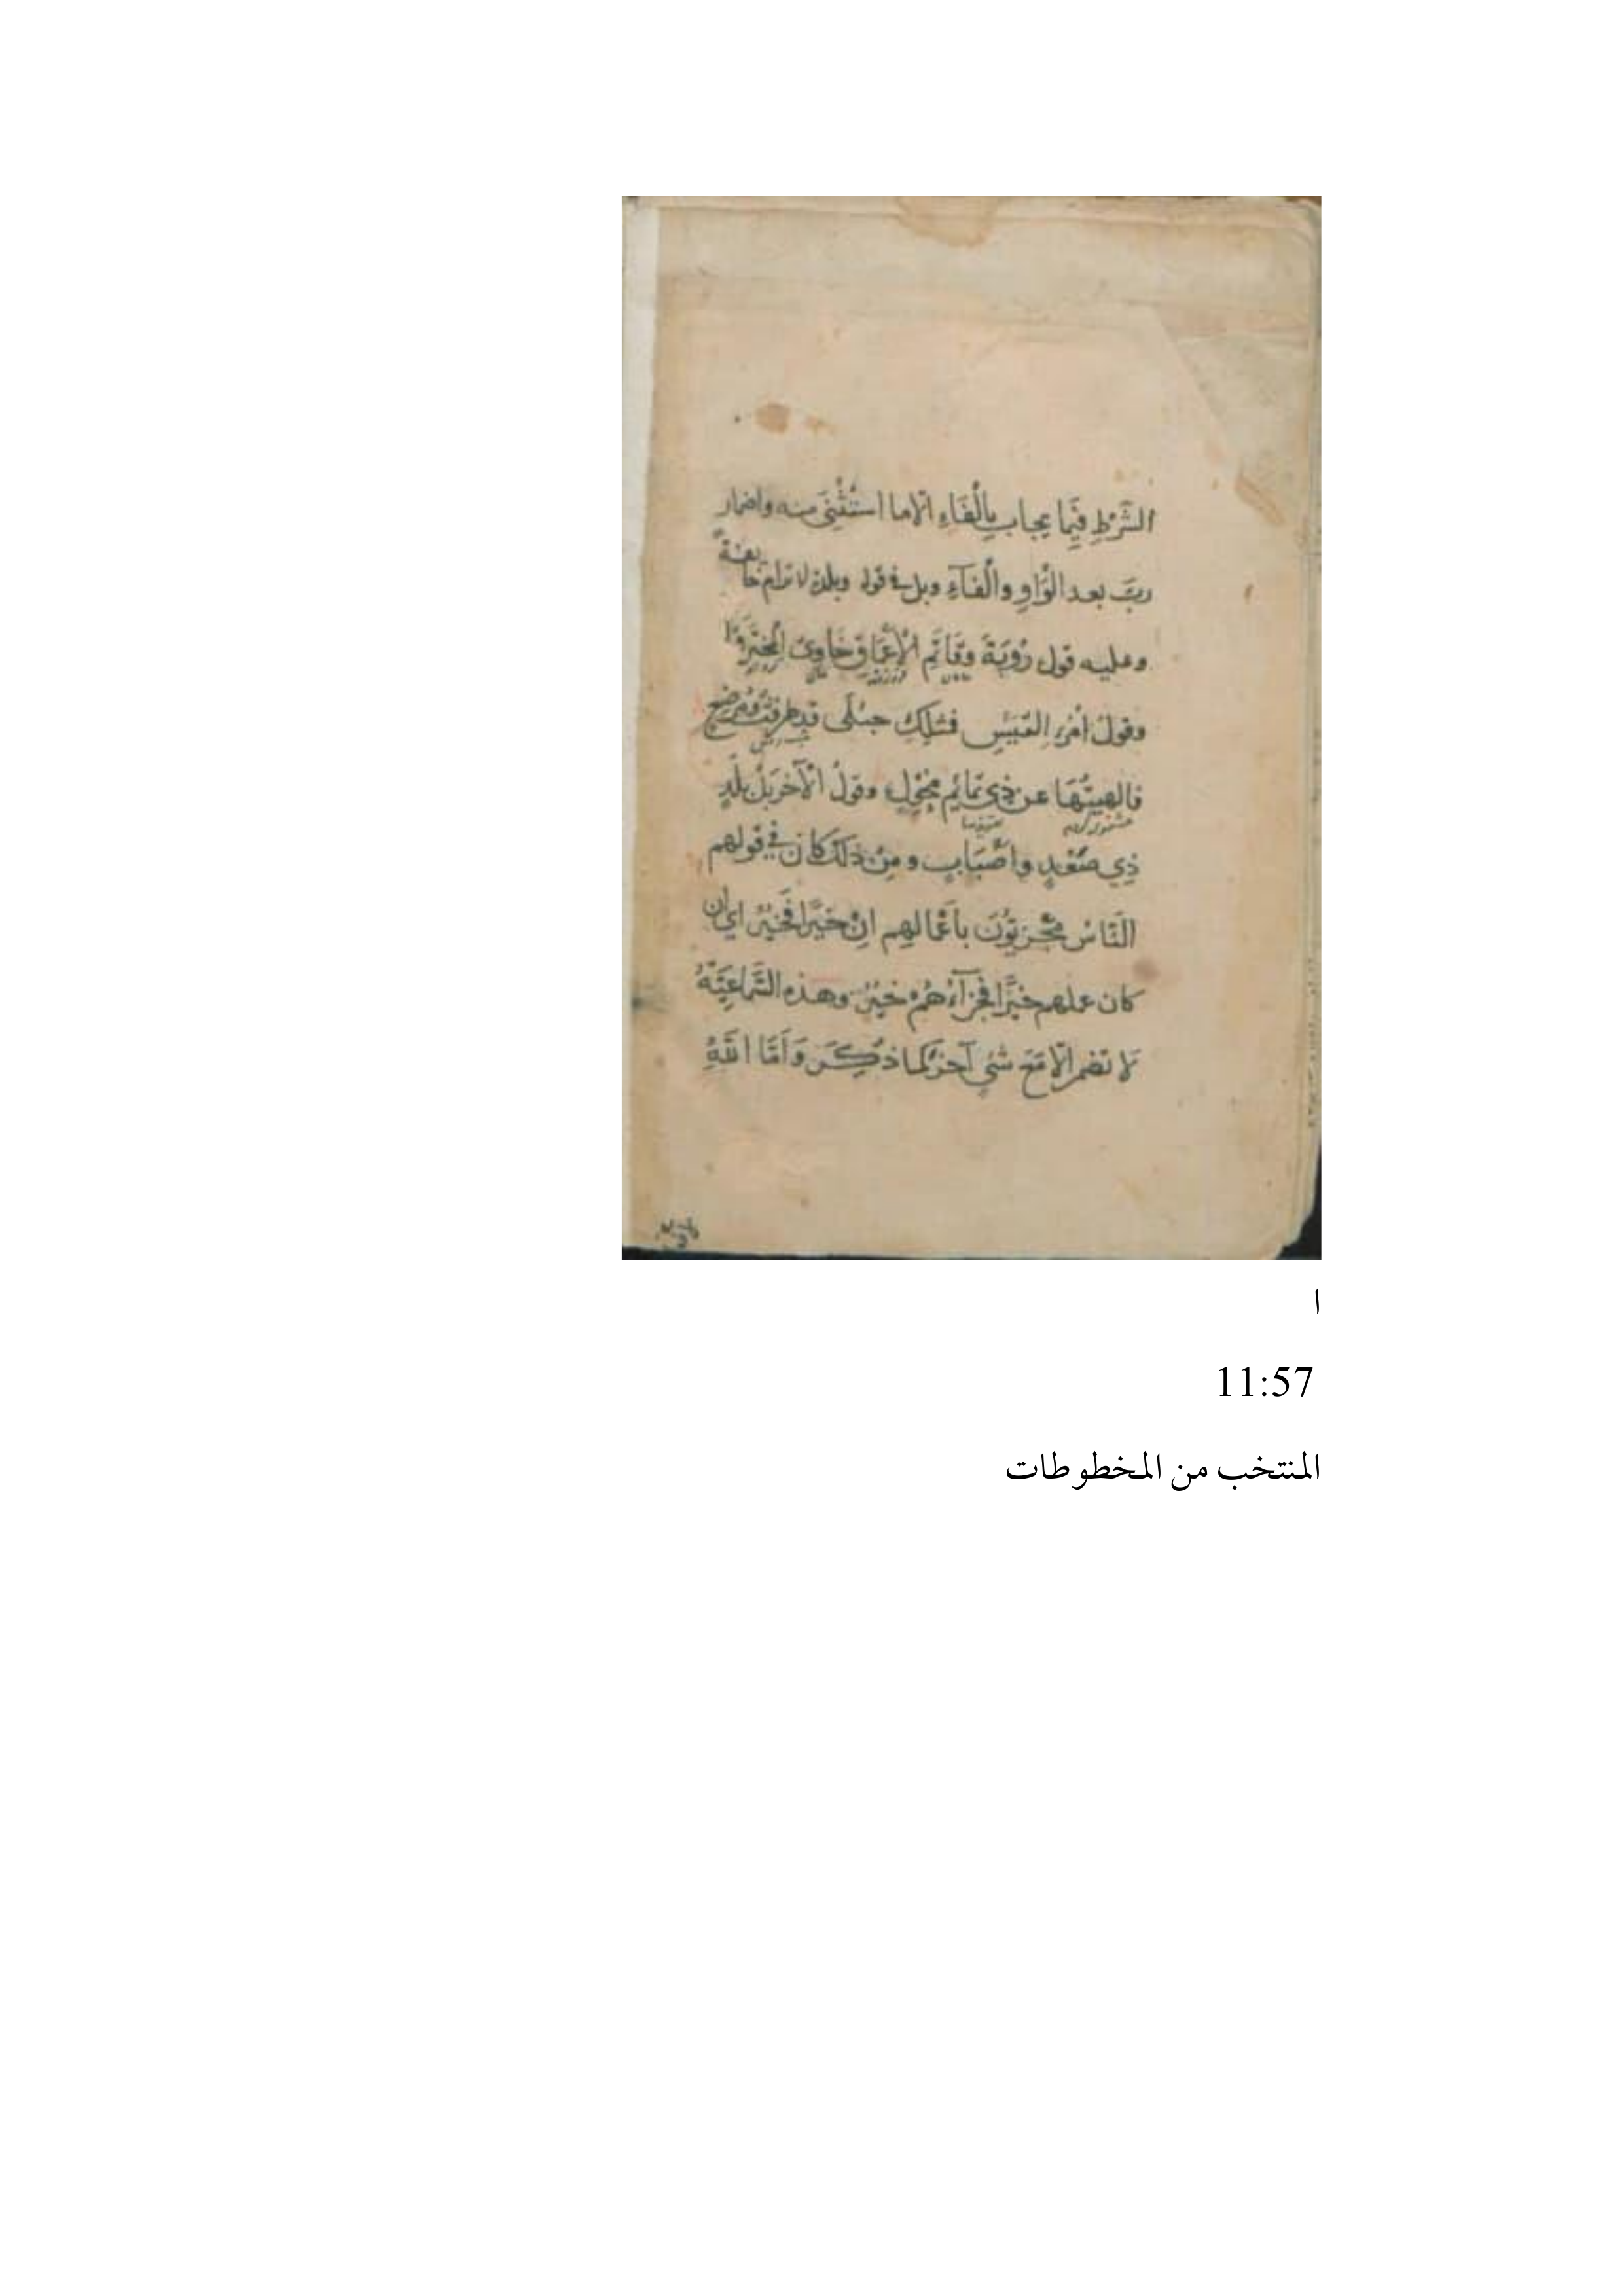 الشَّرْطِ فِيَما يجاب بِالْفَاءِ الّا ما استُثْنِىَ منه واضمار
ربّ بعد الْوَاوِ والْفآءِ وبل فى قوله وبلدة لا ترام خائفةً
وعليه قول رُوبَةَ وقَاتَمِ الْأَعْمَاقِ خَاوِىْ الْمُخْتَرَقْ
وقولُ امْرِء القَيْسِ فمثلِكِ حبْلَى قد طرقتُ ومُرضِعٍ
فالهيتُهَا عن ذِي تمَائِمِ مُحْوِلٍ وقولُ الْآخر بَلْ بلَدٍ
ذِي صُعُدٍ واصْبَابٍ ومِنْ ذلك كان في قولهم
النَّاسُ مجْزِيّوُنَ باَعْمالهِم انْ خيْرًا فخَيْرٌ اي ان
كان عملهم خيْرًا فجزآءُهُمْ خيْرٌ وهذه السَّمَاعِيَّةُ
لَا تضمر الّا مَعَ شئٍ آخر كَما ذُكِرَ وَاَمَّا اللهِ
ا
11:57
المنتخب من المخطوطات